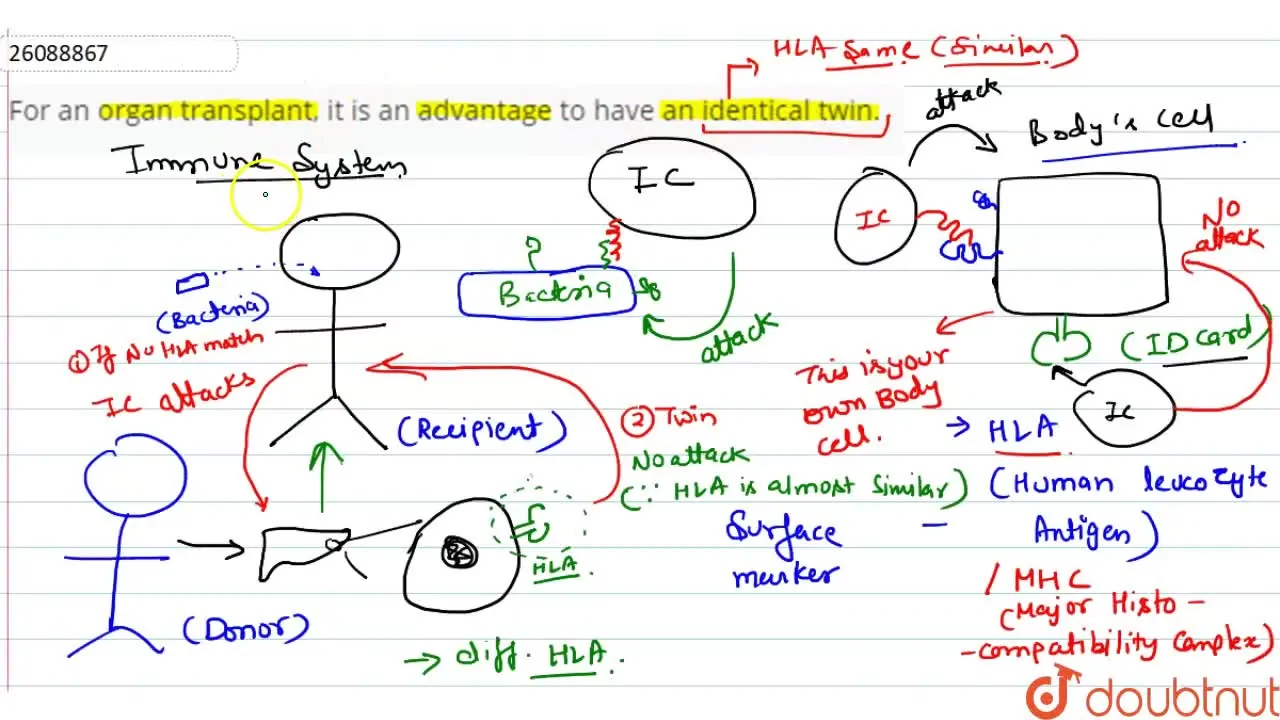 26088867
HLA Same (Similar)
For an organ transplant, it is an advantage to have an identical twin.
attack
Body's cell
Immune System
IC
IC
No
attack
Bacteria
(Bacteria)
① If No HLA match
IC attacks
attack
(ID card)
This is your
own Body
cell.
IC
② Twin
No attack
(∵ HLA is almost similar)
(Recipient)
→ HLA
(Human leucozyte
Antigen)
Surface –
marker
HLA
/ MHC
(Major Histo –
-compatibility Complex)
(Donor)
→ diff. HLA.
doubtnut